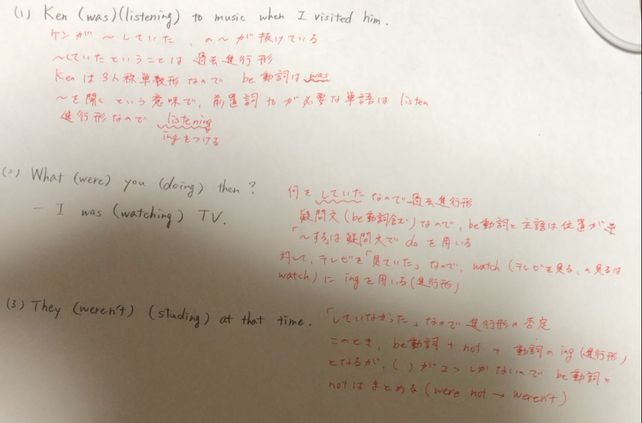 (1) Ken (was)(listening) to music when I visited him.
ケンが 〜していた、の〜が抜けている
〜していたということは過去進行形
Kenは3人称単数形なので be動詞はwas
〜を聞くという意味で、前置詞toが必要な単語はlisten
進行形なので listening
ingをつける
(2) What (were) you (doing) then?
- I was (watching) TV.
何をしていたなので過去進行形
疑問文(be動詞含む)なので、be動詞と主語は位置が逆
「〜する」は疑問文でdoを用いる
対して、テレビを「見ていた」なので、watch (テレビを見る、の見るは
watch)にingを用いる(進行形)
(3) They (weren't) (studing) at that time.
「していなかった」なので進行形の否定
このとき、be動詞+not+動詞のing(進行形)
となるが、( )が2つしかないので be動詞と
notはまとめる(were not → weren't)